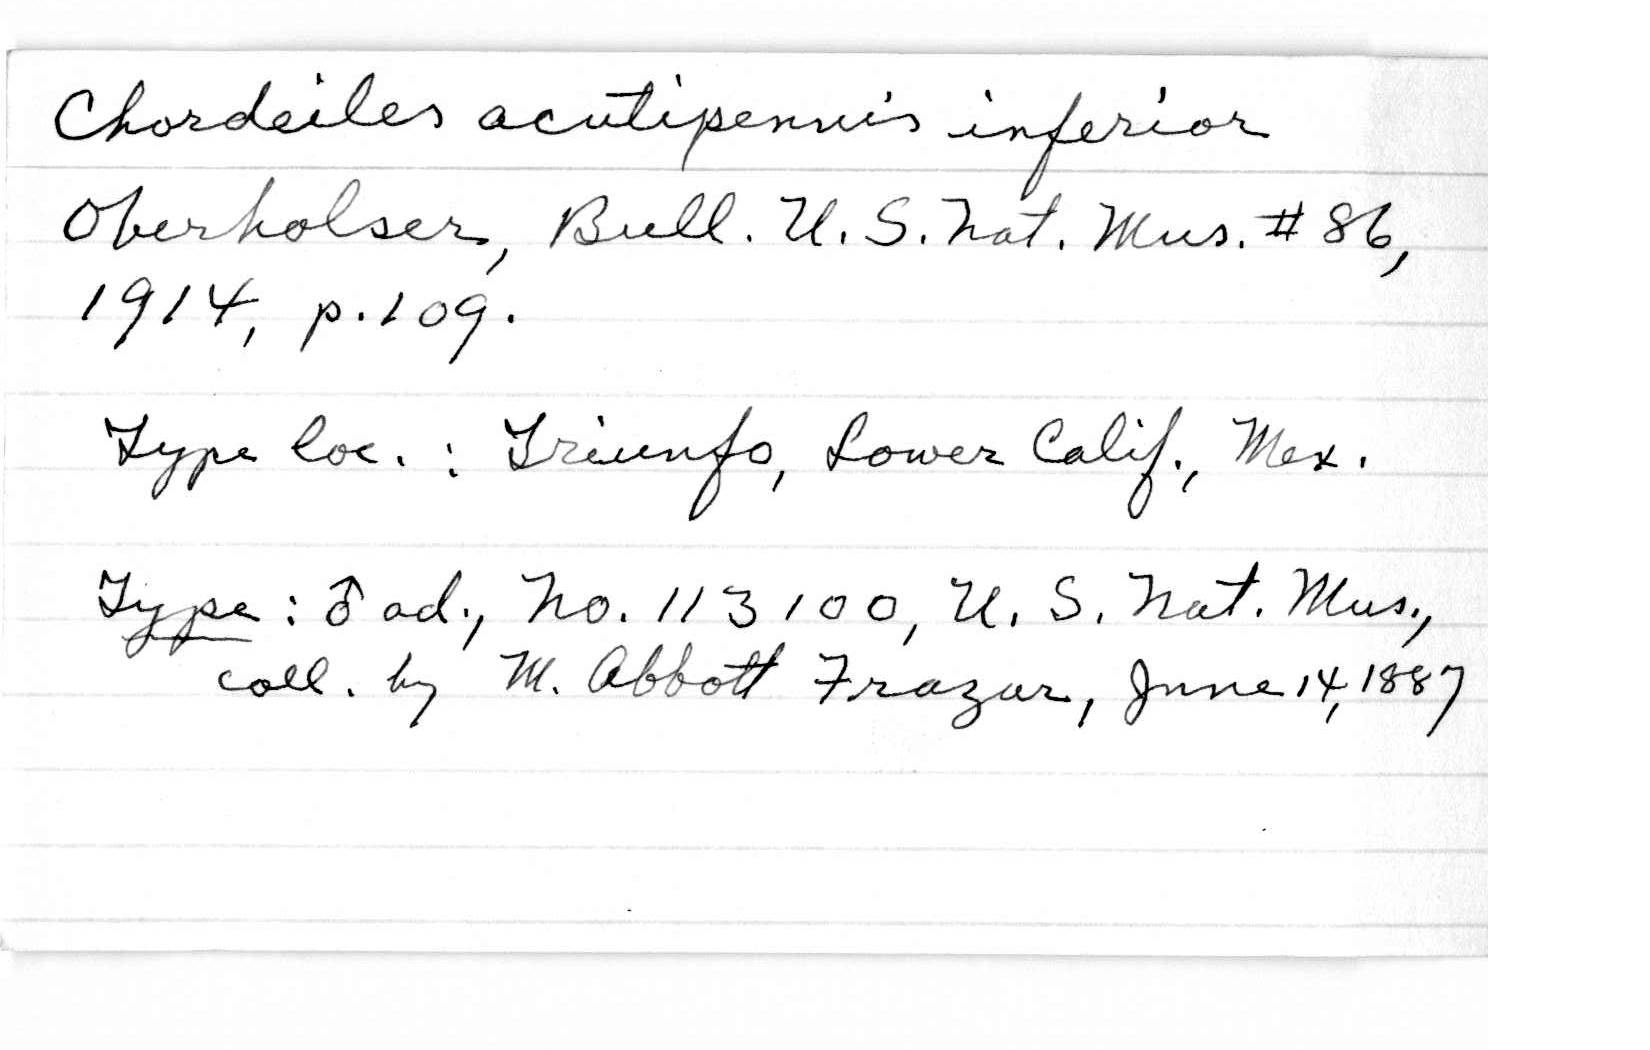 Chordeiles acutipennis inferior
Oberholser, Bull. U.S. Nat. Mus. # 86,
1914, p. 109.
Type loc. : Triunfo, Lower Calif., Mex.
Type : ♂ ad., No. 113100, U. S. Nat. Mus.,
coll. by M. Abbott Frazar, June 14, 1887